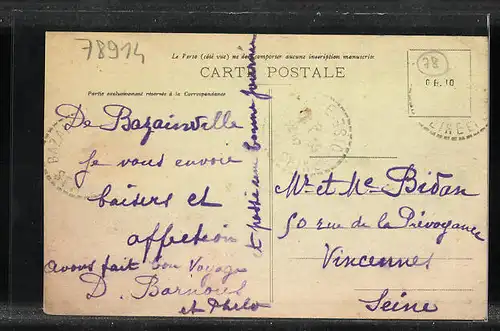 78914
Le Recto (côté vue) ne doit comporter aucune inscription manuscrite
CARTE POSTALE
Partie exclusivement réservée à la Correspondance
78
De Bazainville
Je vous envoie
baisers et
affection
avons fait bon Voyage
D.
et
et passé une bonne journée
Mr et Me Bidan
50 rue de la Prévoyance
Vincennes
Seine